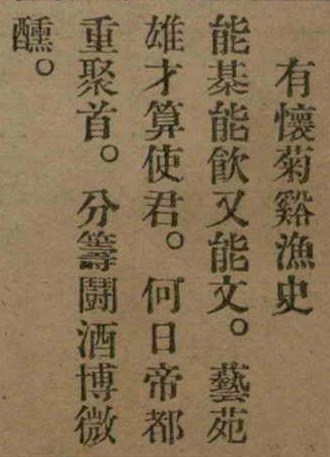 有懷菊谿漁史
能棊能飲又能文。藝苑
雄才算使君。何日帝都
重聚首。分籌鬪酒博微
醺。